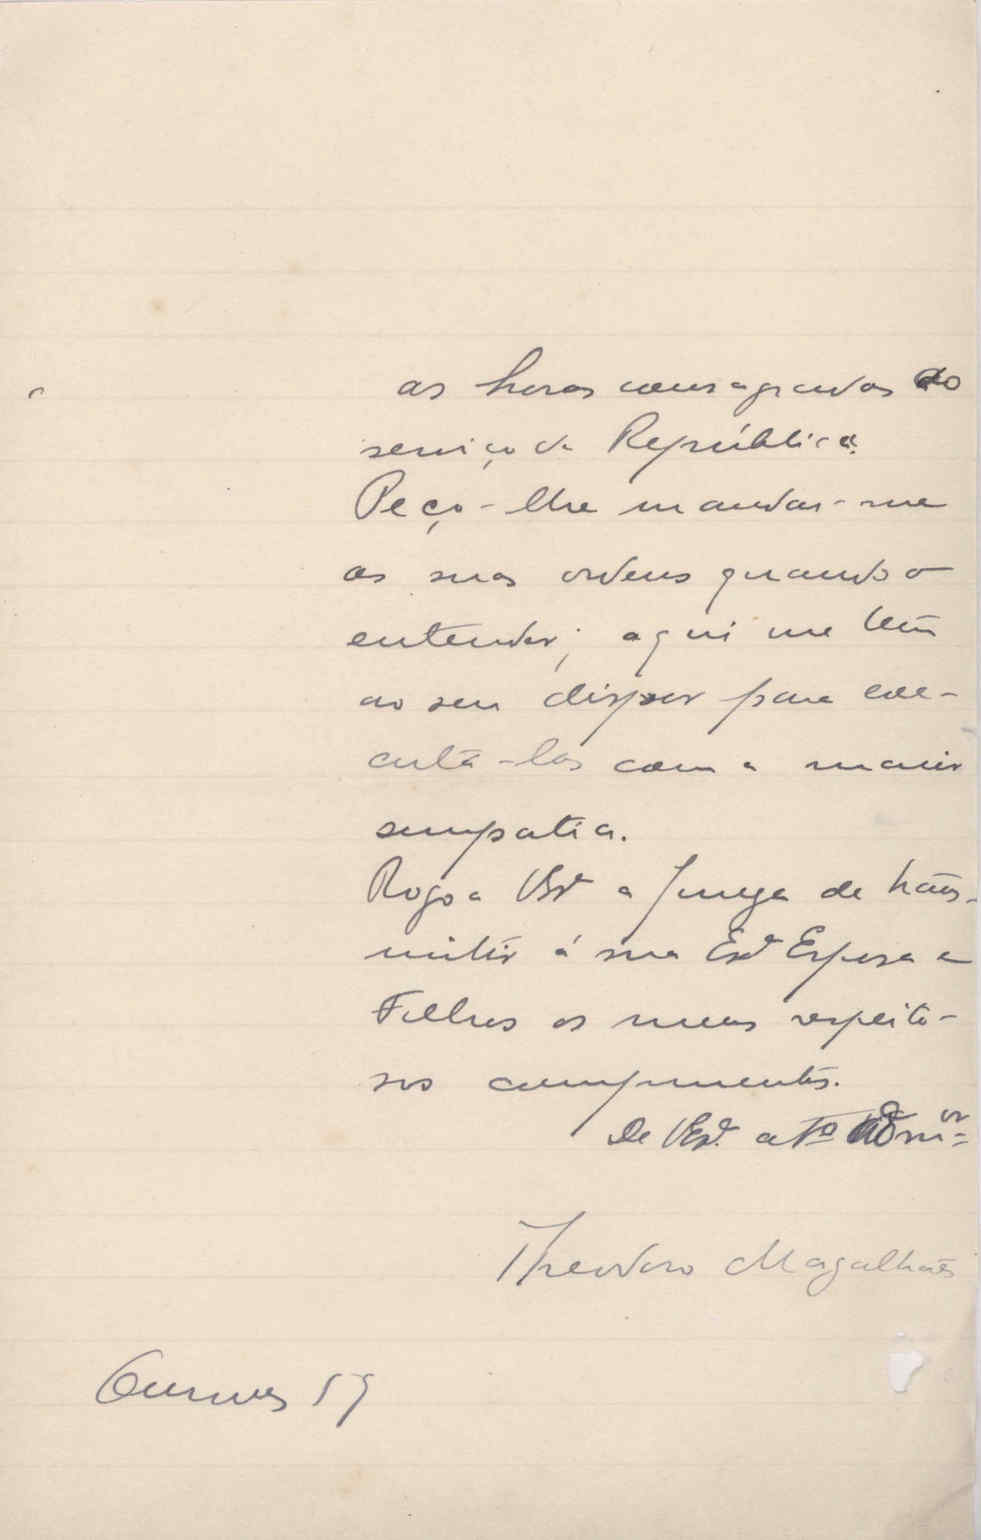 as horas consagradas ao
serviço da República.
Peço-lhe mandar-me
as suas ordens quando o
entender; aqui me tem
ao seu dispor para exe-
cutá-las com a maior
simpatia.
Rogo a VExª a fineza de trans-
mitir á sua Exª Esposa e
Filhos os meus respeito-
sos cumprimentos.
De VExª. atº
Theodoro Magalhães
59